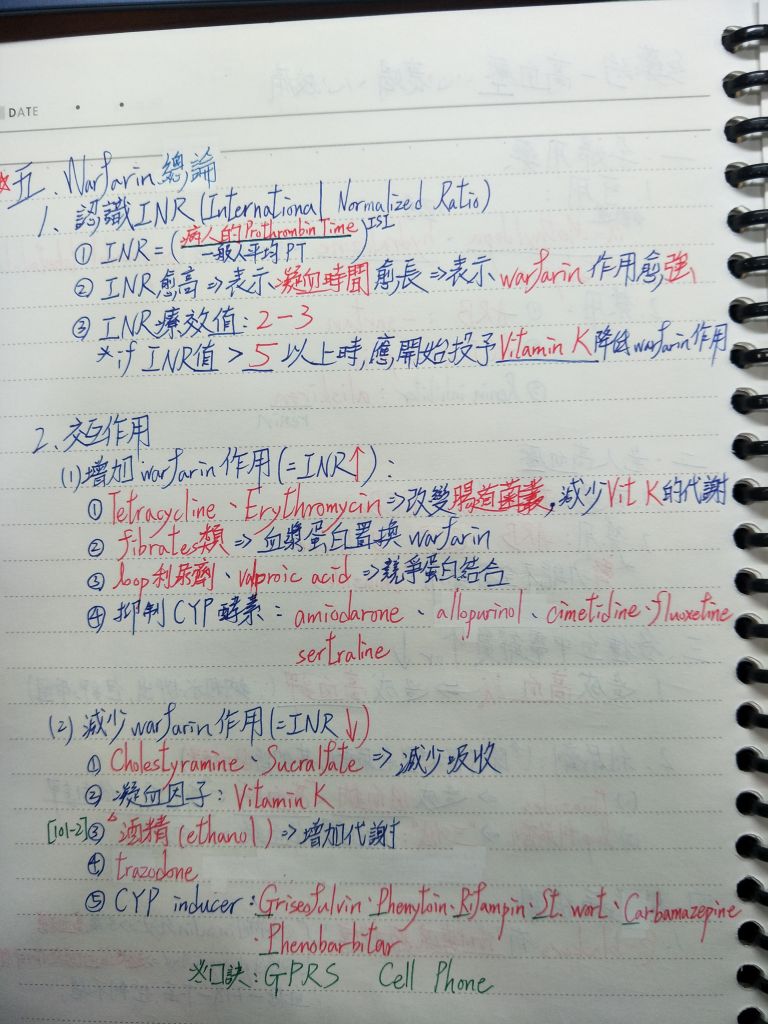 DATE
☆五、Warfarin總論
1、認識INR(International Normalized Ratio)
① INR=(病人的Prothrombin Time/一般人平均PT)ISI
② INR愈高⇒表示凝血時間愈長⇒表示warfarin作用愈強
③ INR療效值:2-3
*if INR值>5以上時,應開始投予Vitamin K降低warfarin作用
2、交互作用
(1)增加warfarin作用(=INR↑):
① Tetracycline、Erythromycin⇒改變腸道菌叢,減少Vit K的代謝
② fibrates類⇒血漿蛋白置換warfarin
③ loop利尿劑、valproic acid⇒競爭蛋白結合
④ 抑制CYP酵素:amiodarone、allopurinol、cimetidine、fluoxetine
sertraline
(2)減少warfarin作用(=INR↓)
① Cholestyramine、Sucralfate⇒減少吸收
② 凝血因子:Vitamin K
[101-2]③ 酒精(ethanol)⇒增加代謝
④ trazodone
⑤ CYP inducer:Griseofulvin、Phenytoin、Rifampin、St. wort、Carbamazepine
、Phenobarbitar
※口訣:GPRS Cell Phone